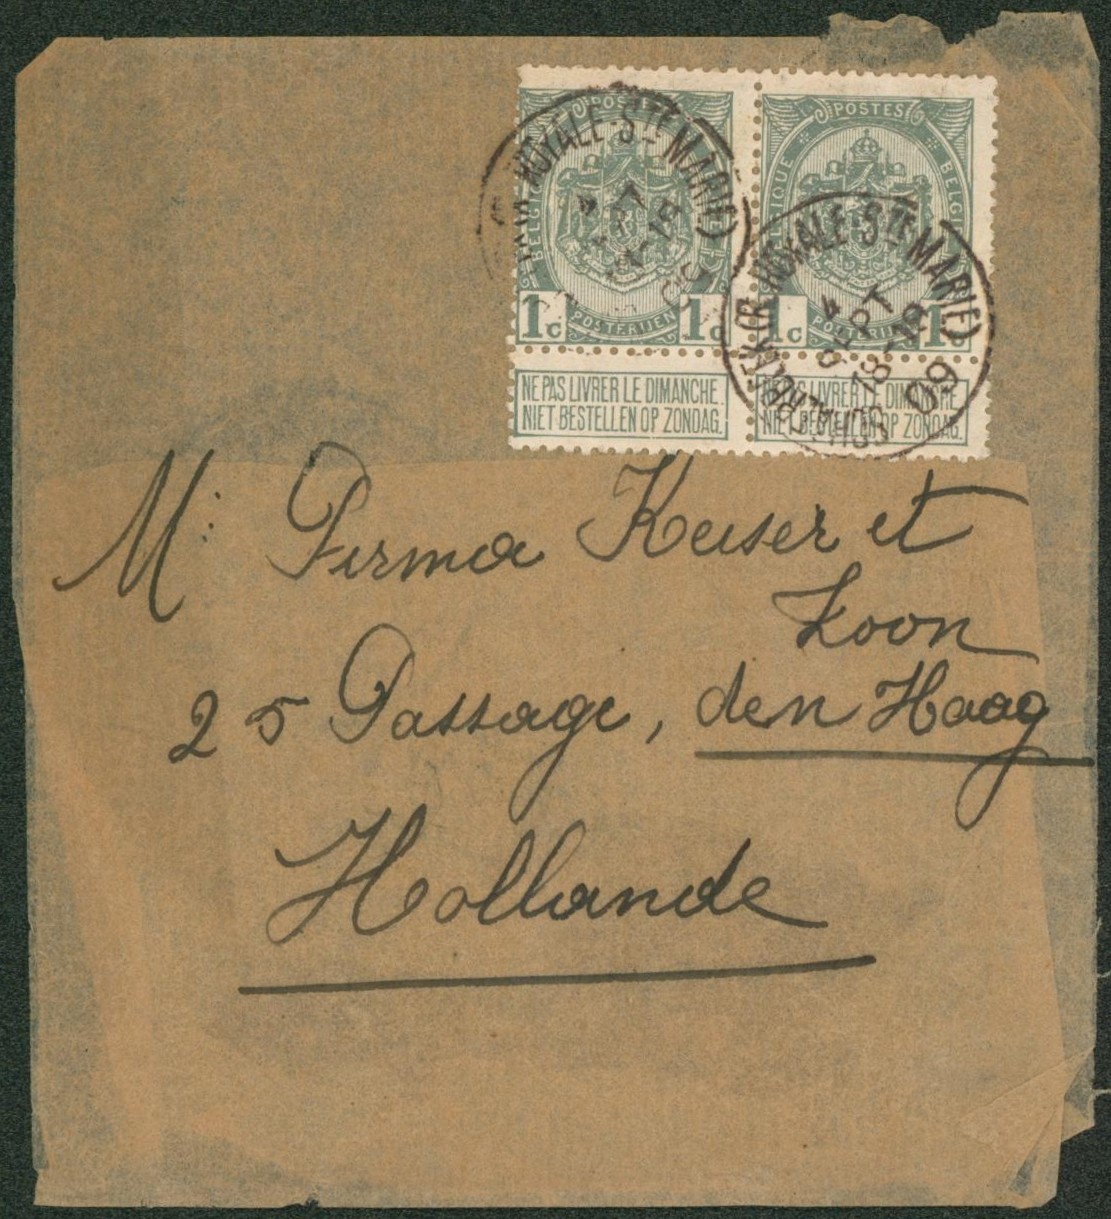 POSTES
BELGI
1c 1c
POSTERIJEN
NE PAS LIVRER LE DIMANCHE.
NIET BESTELLEN OP ZONDAG.
POSTES
BELGIQUE BELGIË
1c 1c
POSTERIJEN
NE PAS LIVRER LE DIMANCHE.
NIET BESTELLEN OP ZONDAG.
ROYALE-STE MARIE)
09
SCHAERBEEK (R. ROYALE-STE MARIE)
4
SEPT
18-19
09
M: Firma Keiser et
Zoon
25 Passage, den Haag
Hollande